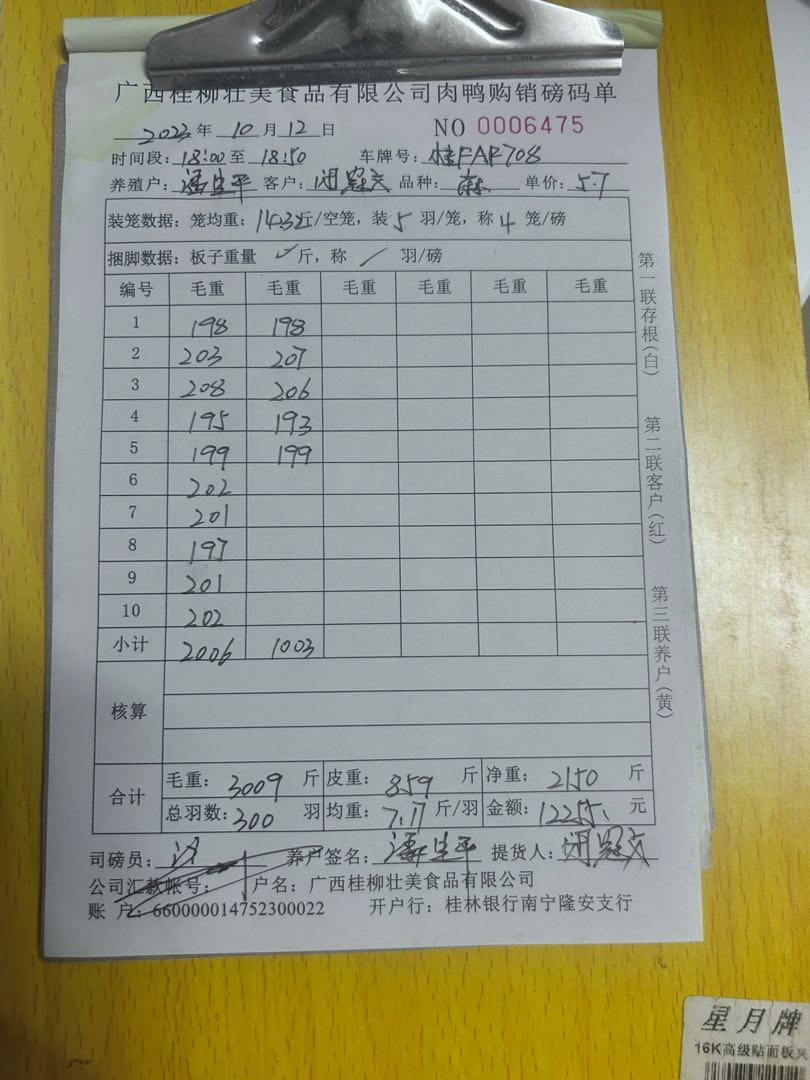 广西桂柳壮美食品有限公司肉鸭购销磅码单
2023年 10月 12日 NO 0006475
时间段：18:00至 18:50 车牌号：桂FAF708
养殖户： 客户： 品种： 单价：5.7
装笼数据：笼均重：14.32斤/空笼，装 5 羽/笼，称 4 笼/磅
捆脚数据：板子重量 斤，称 / 羽/磅
编号 毛重 毛重 毛重 毛重 毛重 毛重
1 198 198
2 203 207
3 208 206
4 195 193
5 199 199
6 202
7 201
8 197
9 201
10 202
小计 2006 1003
核算
合计 毛重：3009 斤 皮重：859 斤 净重：2150 斤
总羽数：300 羽 均重：7.17 斤/羽 金额：12255. 元
司磅员： 养户签名： 提货人：
公司汇款帐号： 户名：广西桂柳壮美食品有限公司
账 户：660000014752300022 开户行：桂林银行南宁隆安支行
第一联存根(白)
第二联客户(红)
第三联养户(黄)
星月牌
16K高级贴面板夹